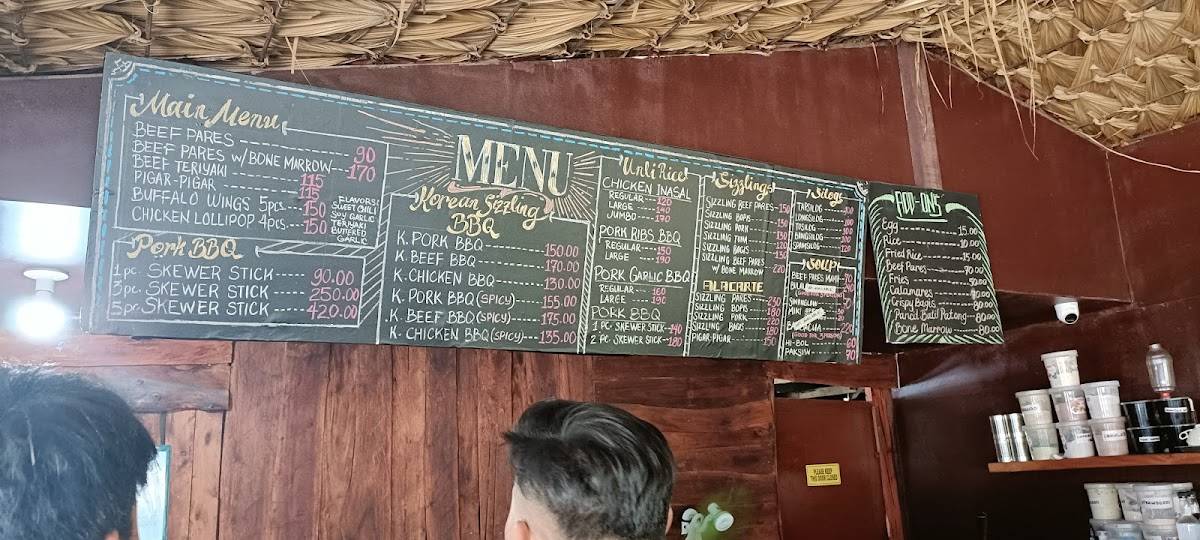 Main Menu
BEEF PARES 90
BEEF PARES W/BONE MARROW 170
BEEF TERIYAKI 115
PIGAR-PIGAR 115
BUFFALO WINGS 5pcs 150
CHICKEN LOLLIPOP 4pcs 150
FLAVORS:
SWEET CHILI
SOY GARLIC
TERIYAKI
BUTTERED
GARLIC
Pork BBQ
1 pc SKEWER STICK 90.00
3 pc SKEWER STICK 250.00
5 pc SKEWER STICK 420.00
MENU
Korean Sizzling
BBQ
K. PORK BBQ 150.00
K. BEEF BBQ 170.00
K. CHICKEN BBQ 130.00
K. PORK BBQ (SPICY) 155.00
K. BEEF BBQ (SPICY) 175.00
K. CHICKEN BBQ (SPICY) 135.00
Unli Rice
CHICKEN INASAL
REGULAR 120
LARGE 140
JUMBO 170
PORK RIBS BBQ
REGULAR 150
LARGE 190
PORK GARLIC BBQ
REGULAR 160
LARGE 190
PORK BBQ
1 PC SKEWER STICK 140
2 PC SKEWER STICK 180
Sizzlings
SIZZLING BEEF PARES 150
SIZZLING BOPIS
SIZZLING PORK
SIZZLING TUNA 130
SIZZLING BAGIS 130
SIZZLING BEEF PARES
W/ BONE MARROW 220
ALACARTE
SIZZLING PARES 230
SIZZLING BOPIS 180
SIZZLING PORK 180
SIZZLING BAGIS 180
PIGAR-PIGAR 150
Silogs
TAPSILOG
LONGSILOG
TOSILOG
BANGSILOG
SPAMSILOG 120
SOUP
BEEF PARES MAMI
HI-BOL 60
PAKSIW 70
ADD-ONS
Egg 15.00
Rice 10.00
Fried Rice 15.00
Beef Pares 70.00
Fries
Calamares
Crispy Bagis
Pancit Batil Patong 80.00
Bone Marrow 80.00
PLEASE KEEP
THIS DOOR CLOSED